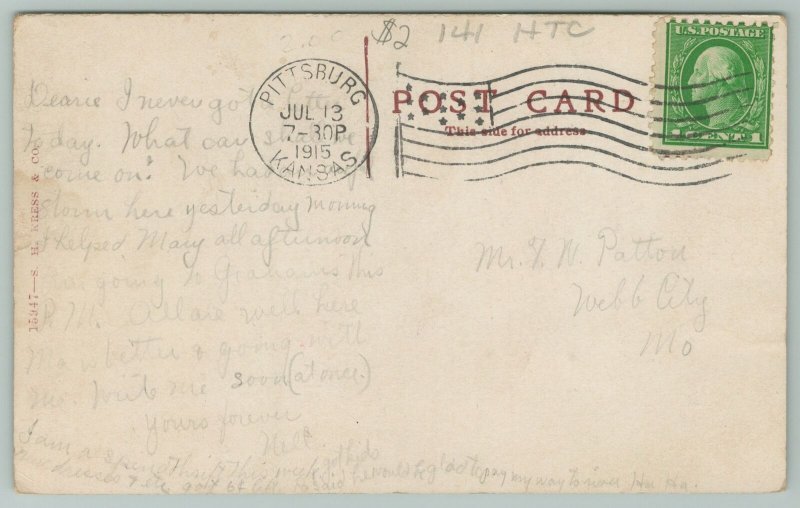 $2 141 HTC
2.00
U.S. POSTAGE
1 CENT 1
PITTSBURG
JUL 13
7-30P
1915
KANSAS
POST CARD
This side for address
15947—S. H. KRESS & CO.
Dearie I never got
today. What can
come on? We had
storm here yesterday morning
I helped Mary all afternoon
going to Grahams this
P.M. All are well here
Ma better & going with
me. Write me soon (at once.)
Yours forever
Nell
I am a spendthrift this week
he would be glad to pay my way to Ha Ha.
Mr. F. W. Patton
Webb City
Mo